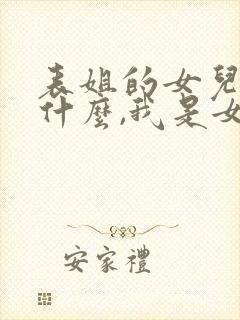 表姐的女兒
什麼,我是女
安家禮